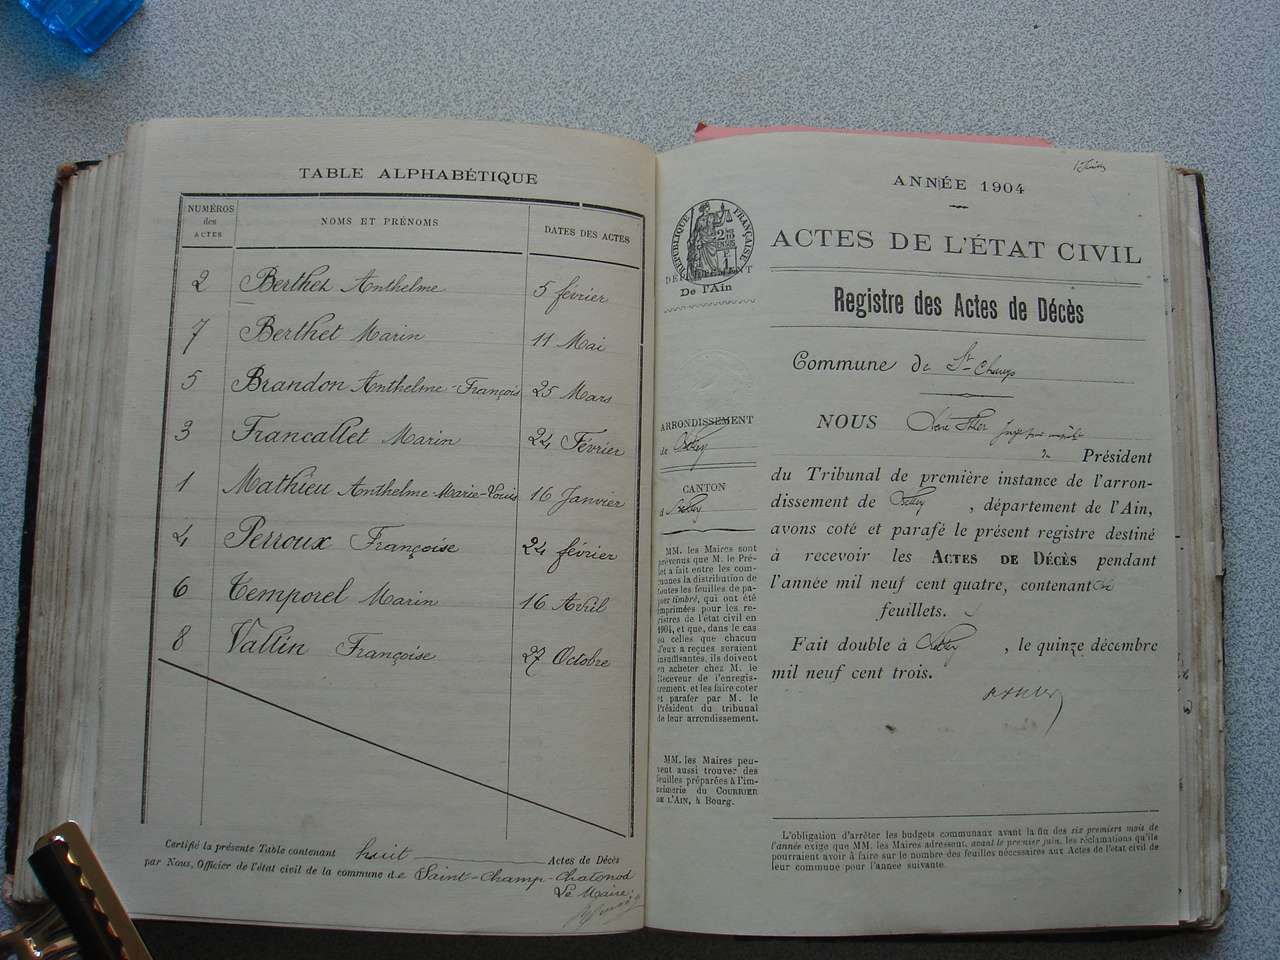 TABLE ALPHABÉTIQUE
NUMÉROS des ACTES NOMS ET PRÉNOMS DATES DES ACTES
2 Berthet Anthelme 5 février
7 Berthet Marin 11 Mai
5 Brandon Anthelme-François 25 Mars
3 Francallet Marin 24 Février
1 Mathieu Anthelme-Marie-Louis 16 Janvier
4 Perroux Françoise 24 février
6 Temporel Marin 16 Avril
8 Vallin Françoise 27 Octobre
Certifié la présente Table contenant huit Actes de Décès
par Nous, Officier de l'état civil de la commune de Saint-Champ-Chatonod
Le Maire,
ANNÉE 1904
ACTES DE L'ÉTAT CIVIL
RÉPUBLIQUE FRANÇAISE
DÉPARTEMENT
De l'Ain
Registre des Actes de Décès
Commune de St Champ
ARRONDISSEMENT
de Belley
CANTON
d Belley
MM. les Maires sont
prévenus que M. le Pré-
fet a fait entre les com-
munes la distribution de
toutes les feuilles de pa-
pier timbré, qui ont été
imprimées pour les re-
gistres de l'état civil en
1904, et que, dans le cas
où celles que chacun
d'eux a reçues seraient
insuffisantes, ils doivent
en acheter chez M. le
Receveur de l'enregis-
trement, et les faire coter
et parafer par M. le
Président du tribunal
de leur arrondissement.
MM. les Maires peu-
vent aussi trouver des
feuilles préparées à l'im-
primerie du COURRIER
DE L'AIN, à Bourg.
NOUS
Président
du Tribunal de première instance de l'arron-
dissement de Belley, département de l'Ain,
avons coté et parafé le présent registre destiné
à recevoir les ACTES DE DÉCÈS pendant
l'année mil neuf cent quatre, contenant
feuillets.
Fait double à Belley, le quinze décembre
mil neuf cent trois.
L'obligation d'arrêter les budgets communaux avant la fin des six premiers mois de
l'année exige que MM. les Maires adressent, avant le premier juin, les réclamations qu'ils
pourraient avoir à faire sur le nombre des feuilles nécessaires aux Actes de l'état civil de
leur commune pour l'année suivante.